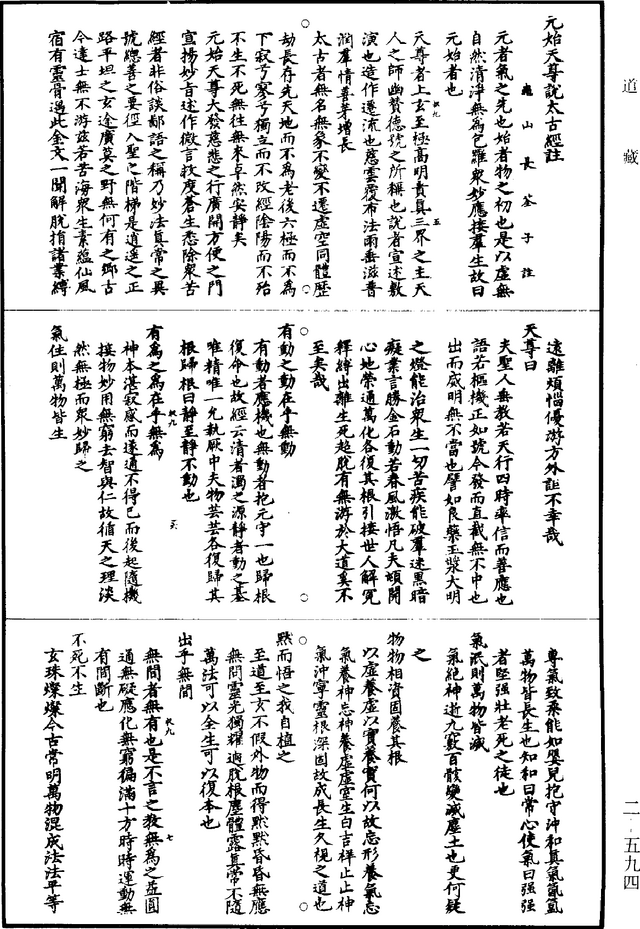 道藏
元始天尊說太古經註
龜山長筌子註
元者氣之先也始者物之初也是以虛無
自然清淨無為包羅眾妙應接羣生故曰
元始者也
天尊者上玄至極高明貴真三界之主天
人之師幽贊德號之所稱也說者宣述敷
演也造作遷流也慈雲覆布法雨垂滋普
潤羣情善芽增長
太古者無名無象不變不遷虛空同體歷
劫長存先天地而不為老後六極而不為
下寂兮寥兮獨立而不改經陰陽而不殆
不生不死無往無來卓然安靜矣
元始天尊大發慈悲之行廣開方便之門
宣揚妙旨述作微言救度蒼生悉除眾苦
經者非俗談鄙語之稱乃妙法真常之異
號總善之要徑入聖之階梯是逍遙之正
路平坦之玄途廣莫之野無何有之鄉古
今達士無不游茲若苦海眾生素蘊仙風
宿有靈骨遇此金文一聞解脫捐諸業縛
遠離煩惱優游方外詎不幸哉
天尊曰
夫聖人垂教若天行四時率信而善應也
語若樞機正如號令發而直截無不中也
出而感明無不當也譬如良藥玉漿大明
之燈能治眾生一切苦疾能破羣迷黑暗
癡業言勝金石動若春風激悟凡夫頓開
心地崇通萬化各復其根引接世人解冤
釋縛出離生死超脫有無游於大道奚不
至矣哉
有動之動在乎無動
有動者應機也無動者抱元守一也歸根
復命也故經云清者濁之源靜者動之基
唯精唯一允執厥中夫物芸芸各復歸其
根歸根曰靜至靜不動也
有為之為在乎無為
神本湛寂感而遂通不得已而後起隨機
接物妙用無窮去智與仁故循天之理淡
然無極而眾妙歸之
氣住則萬物皆生
專氣致柔能如嬰兒抱守沖和真氣氤氳
萬物皆長生也知和曰常心使氣曰强强
者堅强壯老死之徒也
氣泯則萬物皆滅
氣絕神逝九竅百骸變滅塵土也更何疑
之
物物相資固養其根
以虛養虛以實養實何以故忘形養氣忘
氣養神忘神養虛虛室生白吉祥止止神
氣沖寧靈根深固故成長生久視之道也
默而悟之我自植之
至道至玄不假外物而得默默昏昏無應
無問靈光獨耀迥脫根塵體露真常不隨
萬法可以全生可以復本也
出乎無間
無間者無有也是不言之教無為之益圓
通無礙應化無窮徧滿十方時時運動無
有間斷也
不死不生
玄珠燦燦今古常明萬物混成法法平等
二·五九四